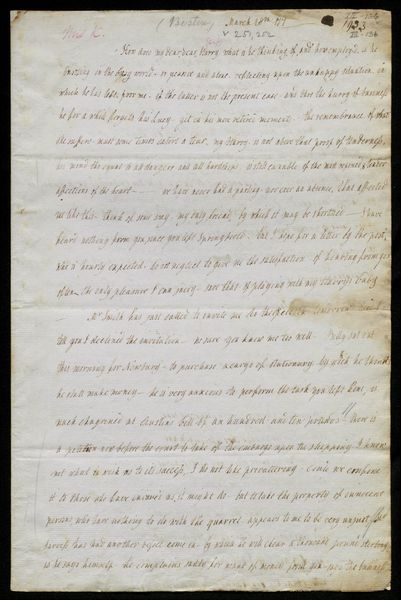 Mrs K. (Thornton) March 28th 177
V 251, 252
1933
How does my dear, dear Harry what is he thinking of, and how employed, is he
engaged in the busy world - or pensive and alone reflecting upon the unhappy situation, in
which he has left, poor me - if the latter is not the present case and that the hurry of business
he for a while forgets his Lucy - yet in his more retired moments - the remembrance of what
she suffers must some times extort a tear, my Harry is not above that proof of tenderness,
his mind tho equal to all dangers and all hardships is still capable of the most refined & tender
affections of the heart - we have never had a parting - or even an absence, that affected
us like this - think of some way, my only friend, by which it may be shortened - I have
heard nothing from you, since you left Springfield - but I hope for a letter by the post
who is hourly expected - do not neglect to give me the satisfaction of hearing from you
often - the only pleasure I can enjoy - save that of playing with my Harry's baby
Mr Smith has just called to invite me to
tell you I declined the invitation - no sure you know me too well - Billy set out
this morning for Newbury - to purchase a cargo of stationary, by which he thinks
he shall make money - he is very anxious to perform the task you left him, is
much chagrined at bill of an hundred and ten pounds - There is
a petition now before the court to take of the embargo upon the shipping I know
not what to wish as to its success, I do not like privateering - could we confine
it to those who have injured us, it might do - but to take the property of innocent
persons who have nothing to do with the quarrel appears to me to be very unjust,
has had another prize come in - by which he will clear thousand pound sterling
as he says himself - he complains sadly for want of money from you - says the business